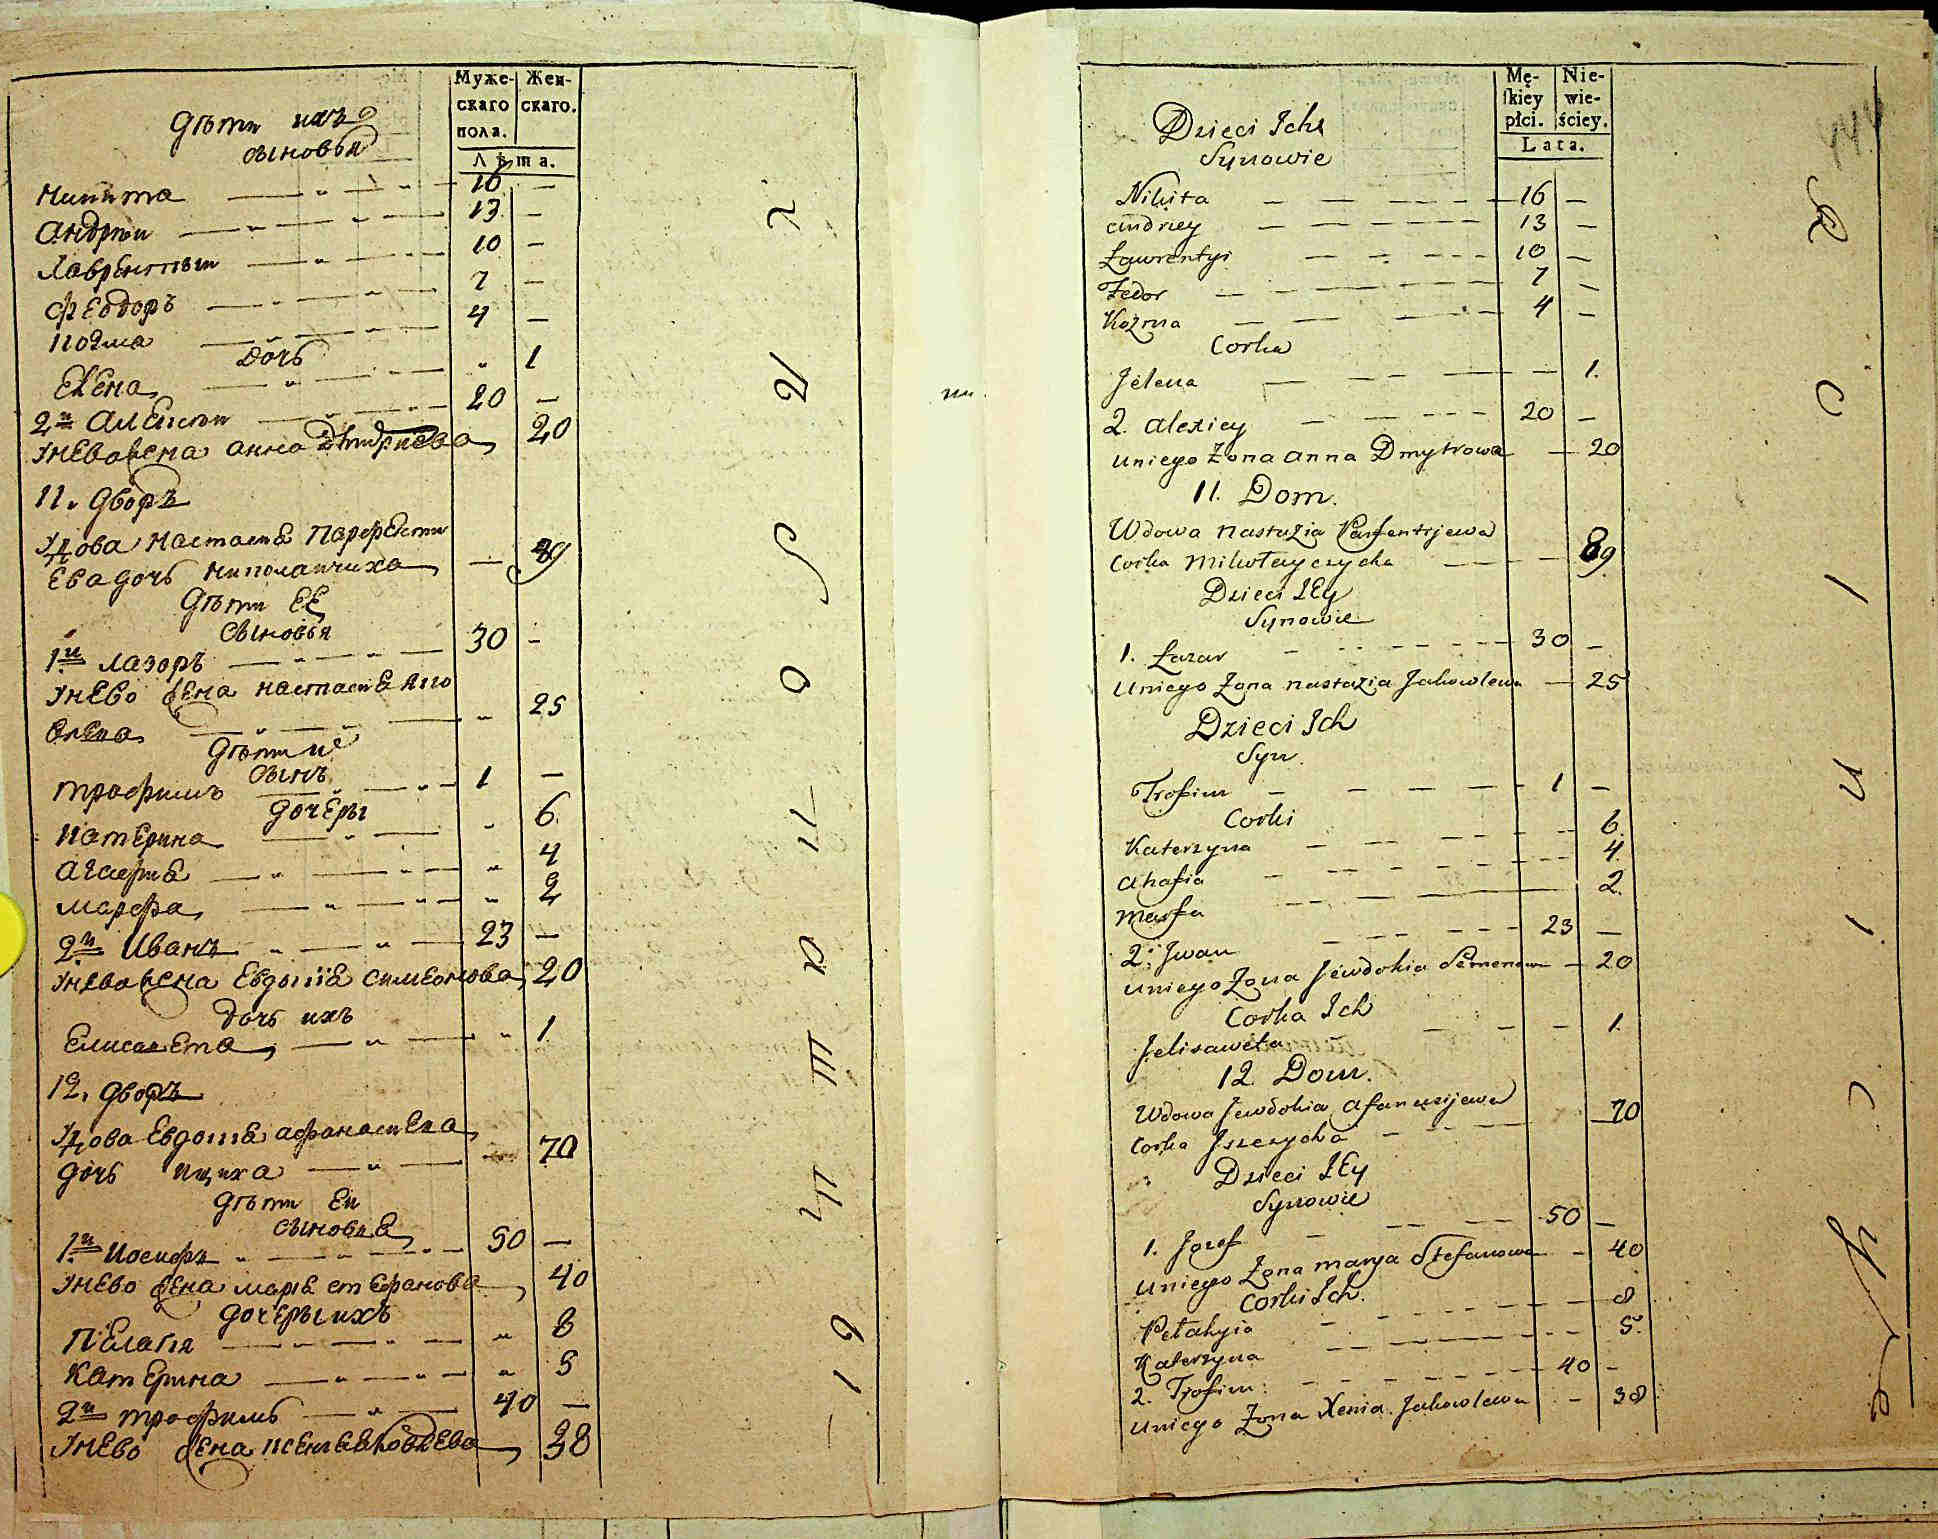 Муже-
скаго
пола.
Жен-
скаго.
Лѣта.
Дѣти ихъ
сыновья
Никита 16 —
Андрѣи 13 —
Лаврентѣи 10 —
Феодоръ 7 —
Козма 4 —
дочь
Елена 1
2и Алексѣи 20 —
Унево жена анна дмитриева 20
11. дворъ
Удова настасиа Парфенти
ева дочь николаичиха — 89
Дѣти ее
сыновья
1и Лазоръ 30 —
Унево жена настасиа яко
влева 25
Дѣти ихъ
сынъ
трофимъ 1 —
дочеры
Катерина 6.
Агафиа 4
марфа 2
2и Иванъ 23 —
Унева жена Евдокиа симеонова 20
дочь ихъ
Елисавета 1.
12. дворъ
Удова Евдокиа афанасиева
дочь ищиха 70
Дѣти Еи
сыновья
1и Иосифъ 50 —
Унево жена мариа стефанова 40
дочеры ихъ
Пелагия 8
Катерина 5
2и трофимъ 40 —
Унево жена ксениа яковлева 38
Mę-
skiey
płci.
Nie-
wie-
ściey.
Lata.
Dzieci Ich
Synowie
Nikita 16 —
Andriey 13 —
Ławrentyi 10 —
Fedor 7 —
Kozma 4 —
Corka
Jelena 1.
2. Alexiey 20 —
uniego Zona Anna Dmytrowa — 20
11. Dom.
Wdowa Nastazia Parfentyjewa
Corka Mikołayczycha 89
Dzieci Iey
Synowie
1. Łazar 30 —
Uniego Zona Nastazia Jakowlewa — 25
Dzieci Ich
Syn
Trofim 1 —
Corki
Katerzyna 6.
Ahafia 4.
Marfa 2.
2. Jwan 23 —
uniego Zona Jewdokia Semenowa — 20
Corka Ich
Jelisaweta 1.
12 Dom.
Wdowa Jewdokia Afanasijewa 70
Corka Jszczycha
Dzieci Iey
Synowie
1. Jozef 50 —
uniego Zona marya Stefanowa — 40
Corki Ich.
Pełahyia 8
Katerzyna 5.
2. Trofim 40 —
uniego Zona Xenia Jakowlewa — 38